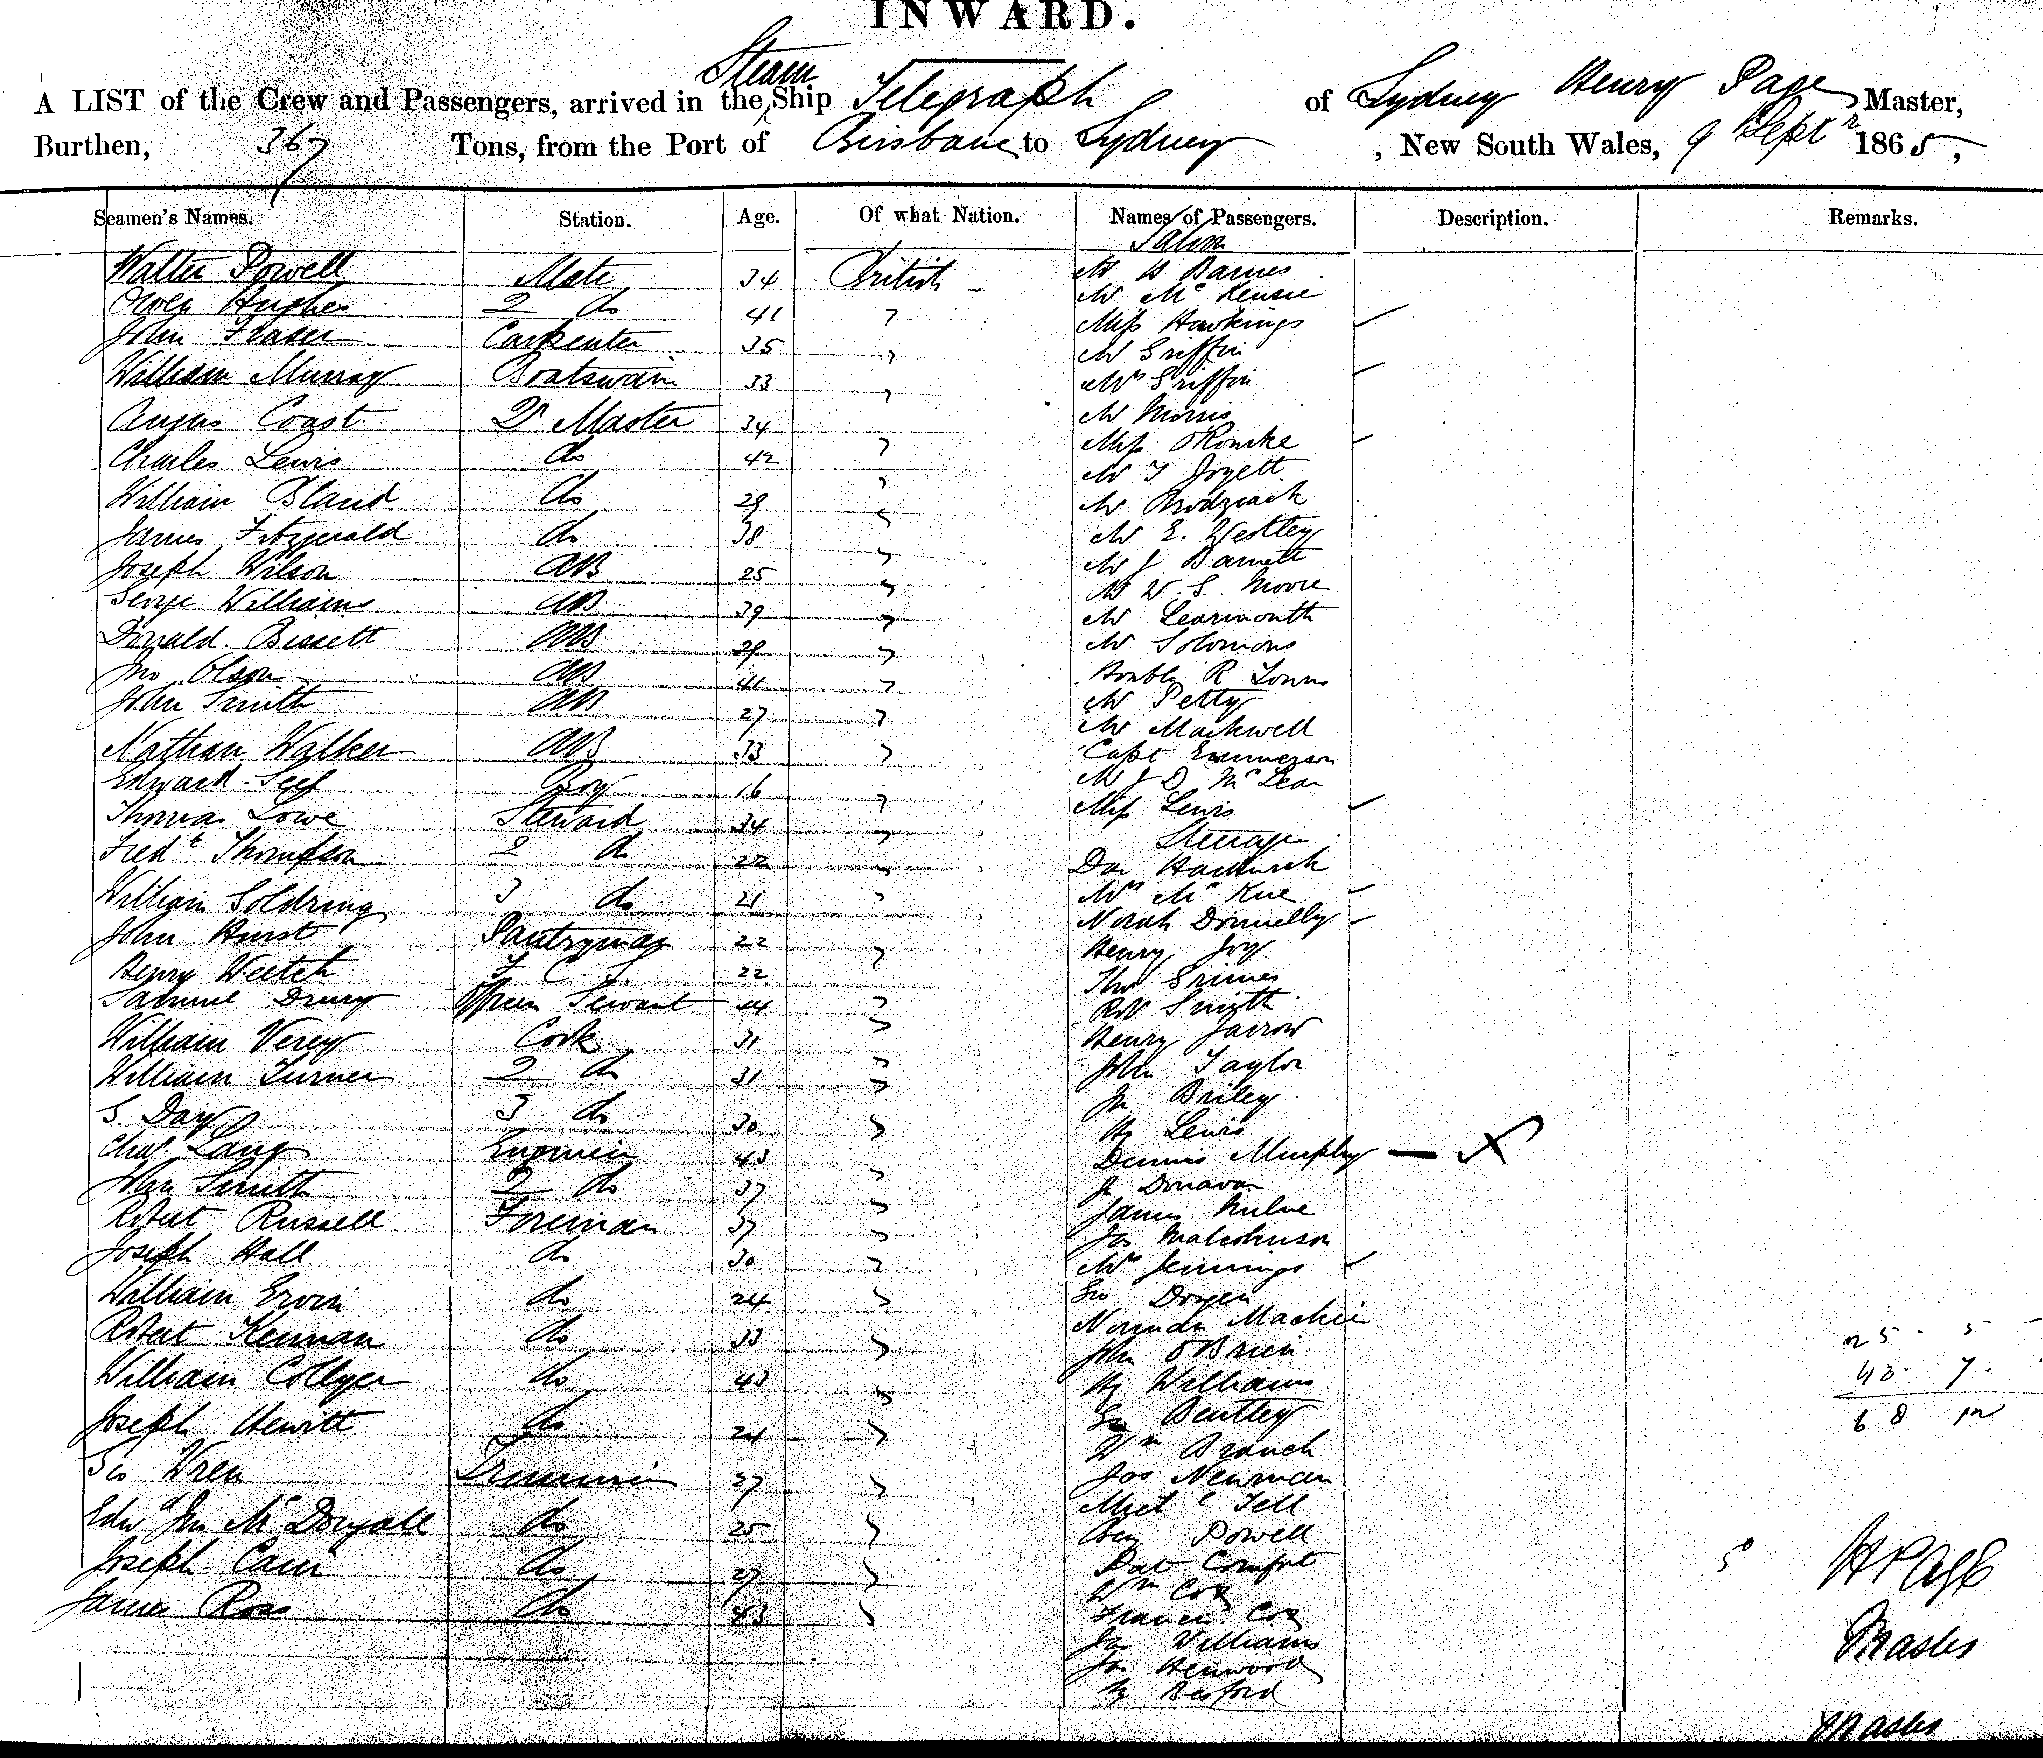 INWARD.
A LIST of the Crew and Passengers, arrived in the Steam Ship Telegraph of Sydney Henry Page Master,
Burthen, 367 Tons, from the Port of Brisbane to Sydney, New South Wales, 9 Septr 1865,
Seamen's Names. Station. Age. Of what Nation. Names of Passengers. Description. Remarks.
Saloon
Walter Powell Mate 34 British
Owen Hughes 2 do 41 "
John Fraser Carpenter 35 "
William Murray Boatswain 33 "
Angus Coast Qr Master 34 "
Charles Lewis do 42 "
William Bland do 29 "
James Fitzgerald do 38 "
Joseph Wilson AB 25 "
George Williams AB 39 "
Donald Bissett AB 29 "
Jno Olsen AB 41 "
John Smith AB 27 "
Nathan Walker AB 33 "
Edward Boy 16 "
Thomas Lowe Steward 34 "
Fredk Thompson 2 do 22 "
William Soldring 3 do 21 "
John Hurst Pantryman 22 "
Henry Veitch F. C. S. 22
Drury Servant "
William Verey Cook 31 "
William Turner 2 do 31 "
S. Day 3 do 30 "
Chas Lang Engineer 43 "
John Smith 2 do 37 "
Robert Russell Fireman 37 "
Joseph Hall do 30 "
William Ervin do 24 "
Robert Keenan do 33 "
William Collyer do 43 "
Joseph Hewitt do 24 "
Geo Wren Trimmer 27 "
Edwd Jno McDougall do 25 "
Joseph Cain do 27 "
James Ross do 43 "
Mr H Barnes
Mr McKensie
Miss Hawkings
Mr Griffin
Mrs Griffin
Mr Morris
Miss O'Rourke
Mr T
Mr Brodziack
Mr E. Westley
Mr J Barnett
Mr W. S. Moore
Mr Learmonth
Mr Solomons
Honble R Towns
Mr Petty
Mr Markwell
Capt Emmerson
Mr J D McLean
Miss Lewis
Steerage
Dan
Mrs McKue
Norah Donnelly
Henry Joy
Thos Grimes
Robt Smith
Henry Jarrow
John Taylor
Jn Briley
Hy Lewis
Dennis Murphy — X
J Donavan
James Milne
Jas Malcolmson
Mrs Jennings
Geo
Mackie
John O'Brien
Hy Williams
Geo Bentley
Wm Branch
Jos Newman
Michl Fell
Hen Powell
Pat
Wm Cox
Francis Cox
Jas Williams
Jas Henwood
Hy
25 5
43 7
68 12
H Page
Master
Master